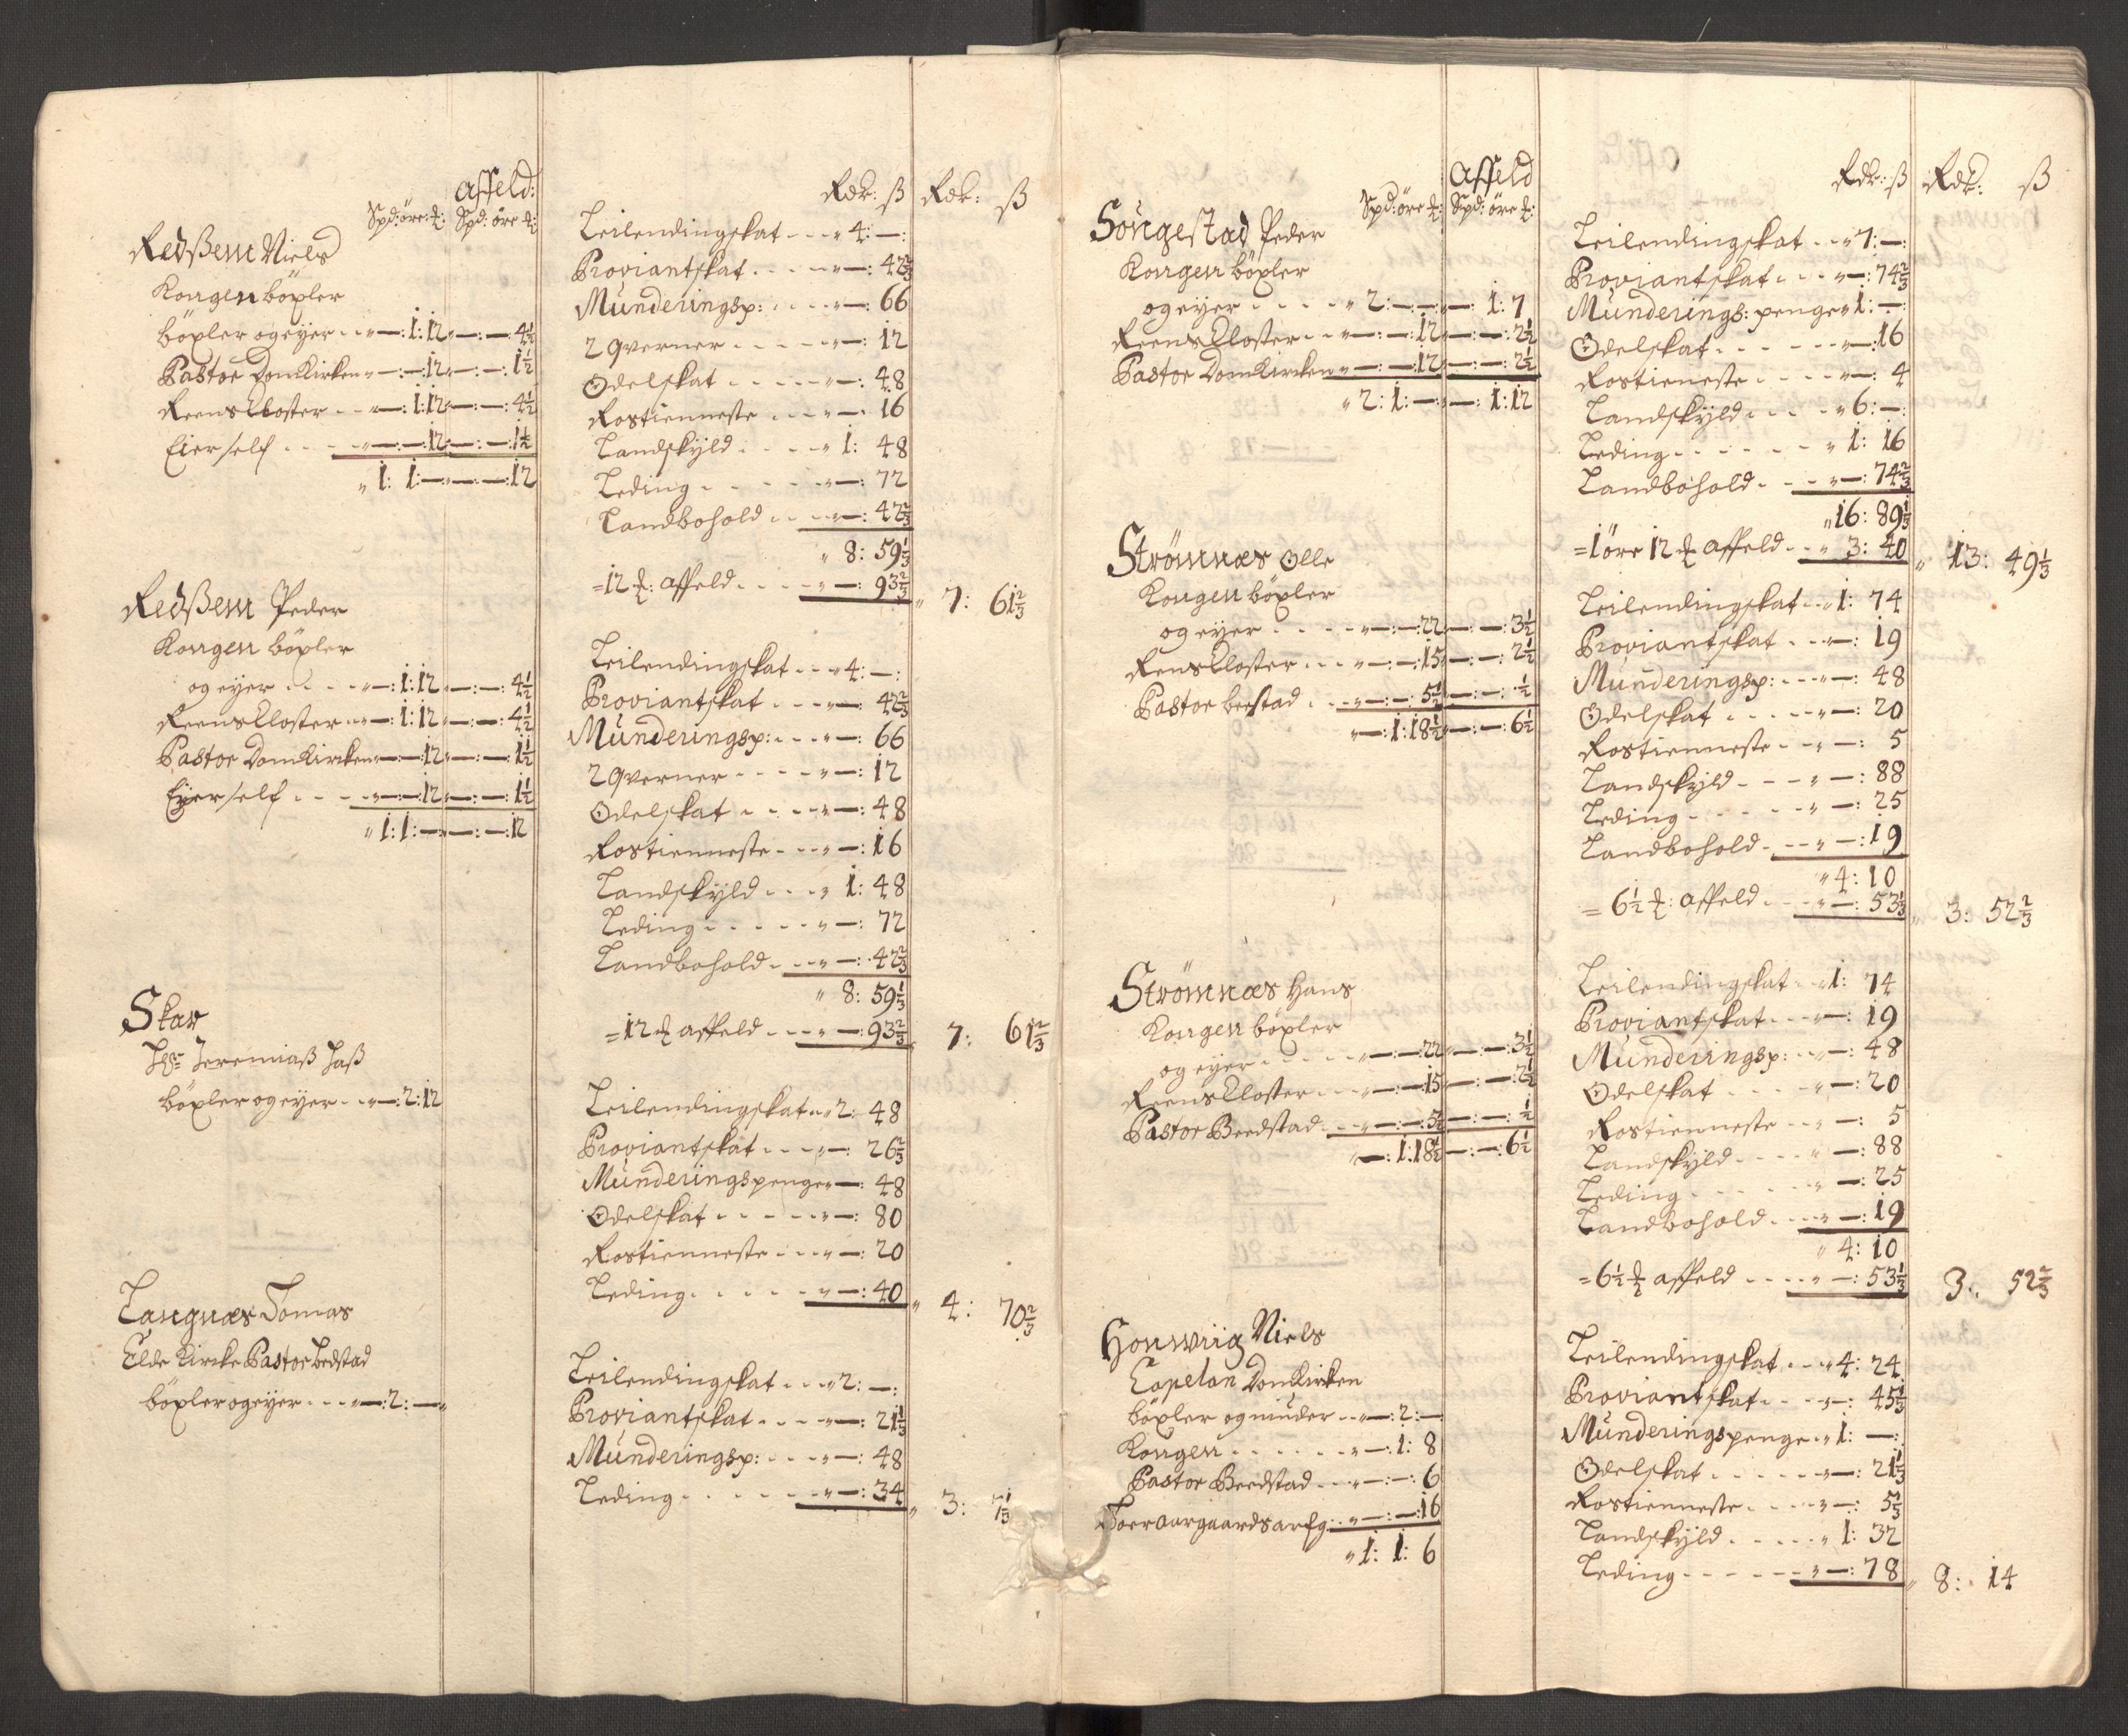 Affeld:
Spd: öre: Spd: öre
Rdr: ß Rdr: ß
Redßem Niels
Kongen böxler
böxler og eyer - - „ — : 1 : 12 „ — : — 4½
Pastor DomKirken „ — : — 12 „ — : — 1½
Reens Closter - - „ — : 1 : 12 „ — : — 4½
Eier self - - - „ — : — 12 „ — : — 1½
„ 1 : 1 : — „ — : — 12
Leilendingskat - - - „ 4 : — :
Proviantskat - - - - „ — : 42⅔
Munderingsp: - - - - „ — : 66
2 qverner - - - - - „ — : 12
Odelskat - - - - - „ — : 48
Rostienneste - - - „ — : 16
Landskyld - - - - „ 1 : 48
Leding - - - - - „ — : 72
Landbohold - - - „ — : 42⅔
„ 8 : 59⅓
= 12 affeld - - - - „ — : 93⅔ „ 7 : 61⅔
Redßem Peder
Kongen böxler
og eyer - - - - „ — : 1 : 12 „ — : — : 4½
Reens Closter - - „ — : 1 : 12 „ — : — : 4½
Pastor DomKircken „ — : — : 12 „ — : — : 1½
Eyer self - - - „ — : — : 12 „ — : — : 1½
„ 1 : 1 : — „ — : — : 12
Leilendingskat - - - „ 4 : — :
Proviantskat - - - „ — : 42⅔
Munderingsp: - - - „ — : 66
2 qverner - - - - „ — : 12
Odelskat - - - - „ — : 48
Rostienneste - - - „ — : 16
Landskyld - - - „ 1 : 48
Leding - - - - - „ — : 72
Landbohold - - - „ — : 42⅔
„ 8 : 59⅓
= 12 affeld - - - „ — : 93⅔ 7 : 61⅔
Skar
Hr Jeremiaß Haß
böxler og eyer - - „ — : 2 : 12
Leilendingskat - - „ 2 : 48
Proviantskat - - - „ — : 26⅔
Munderingspenge „ — : 48
Odelskat - - - - - „ — : 80
Rostienneste - - - „ — : 20
Leding - - - - - „ — : 40 „ 4 : 70⅔
Langnæs Tomas
Elde Kircke Pastor bedstad
böxler og eyer - - - „ — : 2 : — „
Leilendingskat - - - „ 2 : — :
Proviantskat - - - - „ — : 21⅓
Munderingsp: - - - „ — : 48
Leding - - - - - - „ — : 34 „ 3 : 7⅓
Affeld
Spd: öre Spd: öre
Rdr: ß Rdr: ß
Songestad Peder
Kongen böxler
og eyer - - - - „ 2 : — : — „ — : 1 : 7
Reens Closter - - „ — : — : 12 „ — : — : 2½
Pastor DomKircken „ — : — 12 „ — : — : 2½
„ 2 : 1 : — „ — : 1 : 12
Leilendingskat - - „ 7 : — :
Proviantskat - - - „ — : 74⅔
Munderings: penge „ 1 : — :
Odelskat - - - - - - „ — : 16
Rostieneste - - - - „ — : 4
Landskyld - - - - „ 6 : — :
Leding - - - - - - „ 1 : 16
Landbohold - - - „ — : 74⅔
„ 16 : 89⅓
= 1 öre 12 affeld - - „ 3 : 40 „ 13 : 49⅓
Strömnæs Olle
Kongen böxler
og eyer - - - - „ — : — : 22 „ — : — : 3½
Reens Closter - - - „ — : — : 15 „ — : — : 2½
Pastor beestad - - „ — : — : 5½ „ — : — : ½
„ — : 1 : 18½ „ — : — : 6½
Leilendingskat - - „ 1 : 74
Proviantskat - - - „ — : 19
Munderingsp: - - - „ — : 48
Odelskat - - - - - „ — : 20
Rostienneste - - - „ — : 5
Landskyld - - - - „ — : 88
Leding - - - - - - „ — : 25
Landbohold - - - „ — : 19
„ 4 : 10
= 6½ : affeld - - - „ — : 53⅓ „ 3 : 52⅔
Strömnæs Hans
Kongen böxler
og eyer - - - - „ — : — : 22 „ — : — : 3½
Reens Closter - - - „ — : — 15 „ — : — : 2½
Pastor Beedstad - - „ — : — : 5½ — : — : ½
„ — : 1 : 18½ — : — : 6½
Leilendingskat - - „ 1 : 74
Proviantskat - - - „ — : 19
Munderingsp: - - - „ — : 48
Odelskat - - - - „ — : 20
Rostienneste - - - „ — : 5
Landskyld - - - - „ — : 88
Leding - - - - - - „ — : 25
Landbohold - - - „ — : 19
„ 4 : 10
= 6½ affeld - - - - „ — : 53⅓ 3 : 52⅔
Honwiig Niels
Capelan DomKirken
böxler og minder - - „ — : 2 : —
Kongen - - - - - - „ — : 1 : 8
Pastor Beedstad - - - „ — : — : 6
Toer aargaards arfg: - „ — : — : 16
„ 1 : 1 : 6
Leilendingskat - - - „ 4 : 24
Proviantskat - - - - „ — : 45⅓
Munderingspenge - „ 1 : — :
Odelskat - - - - - - „ — : 21⅓
Rostienneste - - - - „ — : 5⅓
Landskyld - - - - - „ 1 : 32
Leding - - - - - - - „ — : 78 „ 8 : 14